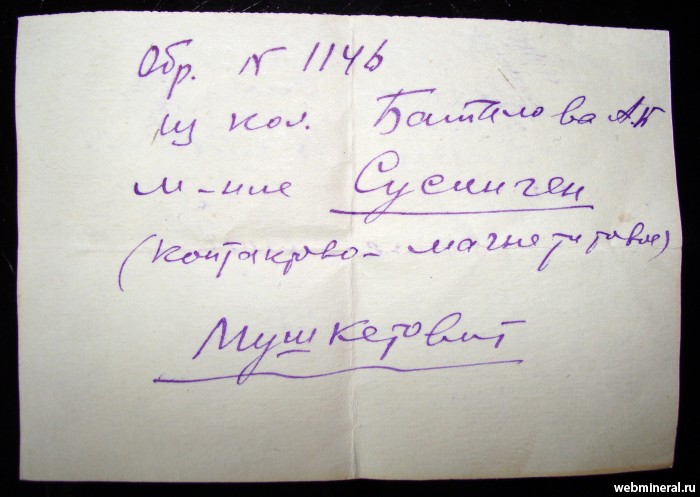 Обр. N 114б
из кол. Батилова А.К
м-ние Сусинчен
(контактово-магнетитовое)
Мушкетовит
webmineral.ru